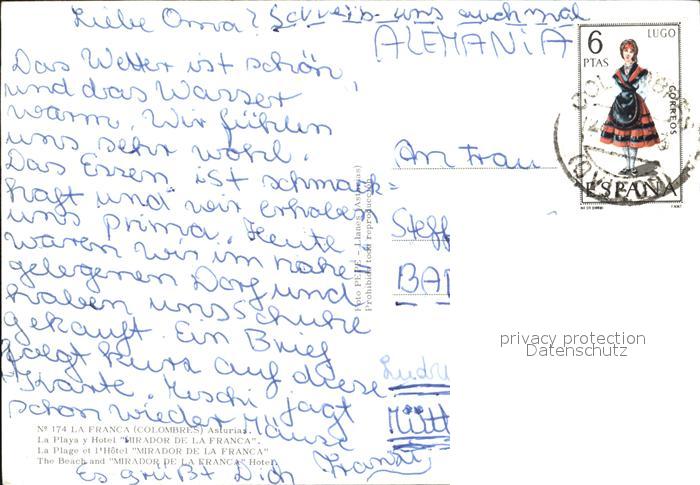 Liebe Oma! Schreib uns auch mal
ALEMANIA
Das Wetter ist schön,
und das Wasser
warm. Wir fühlen
uns sehr wohl.
Das Essen ist schmack=
haft und wir erholen
uns prima. Heute
waren wir im nahe
gelegenen Dorf und
haben uns Schuhe
gekauft. Ein Brief
folgt kurz auf diese
Karte. Muschi jagt
schon wieder Mäuse
Es grüßt Dich Franzi
An Frau
Steff
BAD
Ludw
Mütt
6
PTAS
LUGO
CORREOS
ESPAÑA
Foto PEPE - Llanes (Asturias)
Prohibida toda reproducción
Nº 174 LA FRANCA (COLOMBRES) Asturias.
La Playa y Hotel "MIRADOR DE LA FRANCA".
La Plage et l'Hôtel "MIRADOR DE LA FRANCA"
The Beach and "MIRADOR DE LA FRANCA" Hotel.
privacy protection
Datenschutz